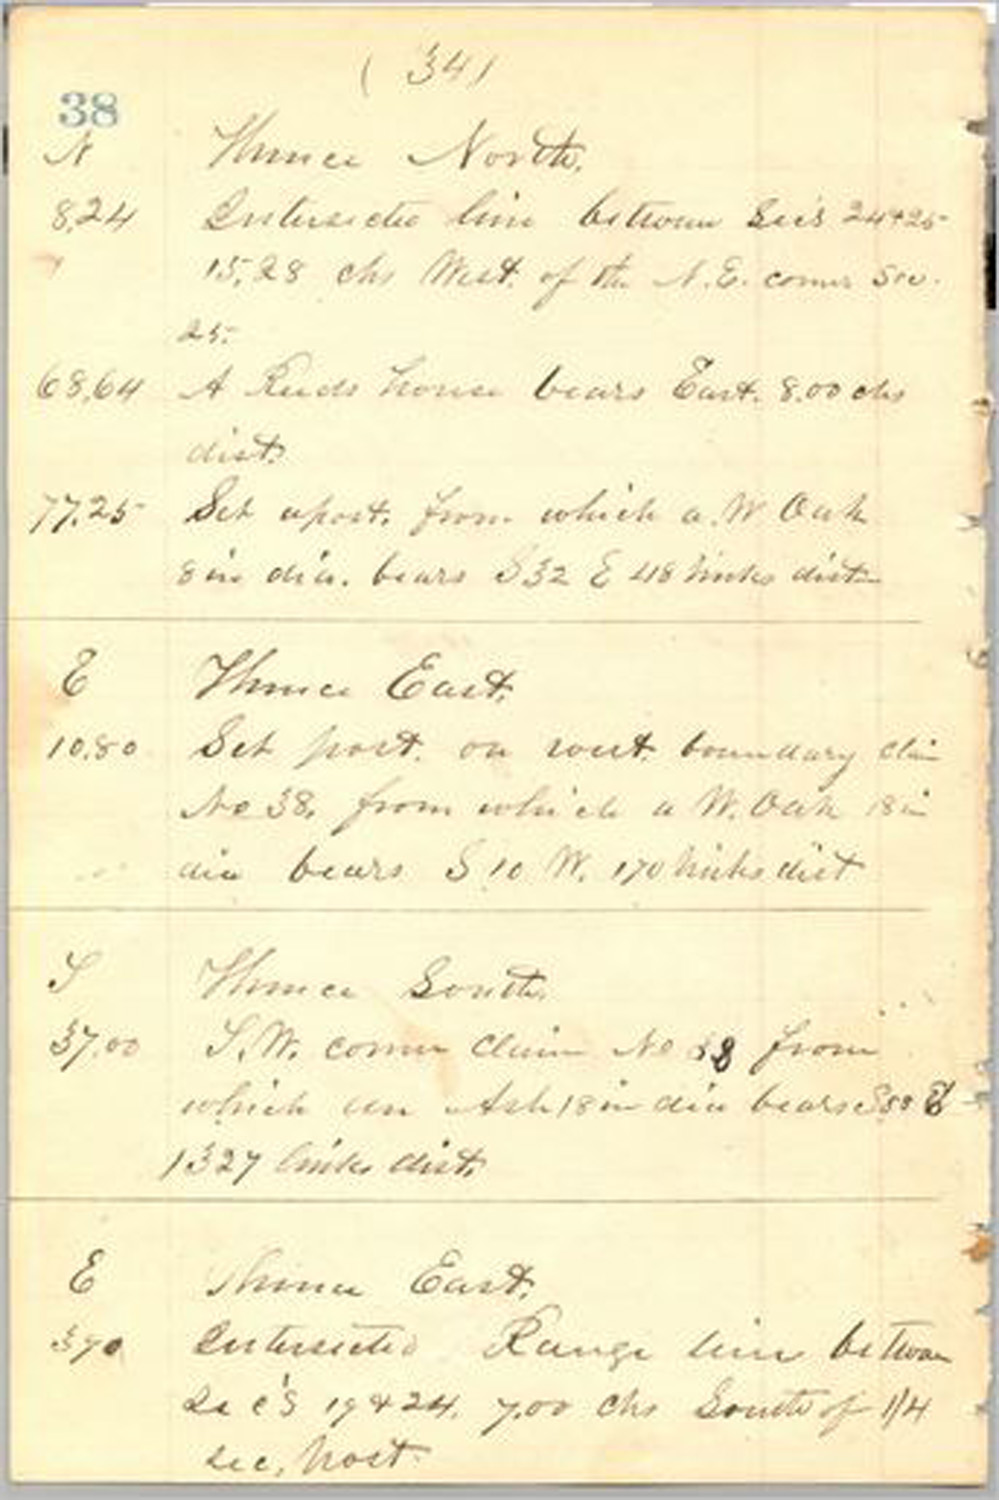 ( 34 )
38
N Thence North.
8,24 Intersected line between Sec's 24 & 25
15,28 chs West. of the N.E. corner Sec.
25.
68,64 A Reeds house bears East. 8.00 chs
dist.
77.25 Set a post. from which a W. Oak
8 in dia. bears S 32 E 48 links dist
E Thence East.
10.80 Set post. on west. boundary Claim
No 38. from which a W. Oak 18 in
dia bears S 10 W. 170 links dist
S Thence South.
37.00 S.W. corner Claim No 38 from
which an Ash 18 in dia bears E
1327 links dist.
E Thence East.
Intersected Range line between
Sec's 19 & 24. 7.00 chs South of 1/4
sec, post.